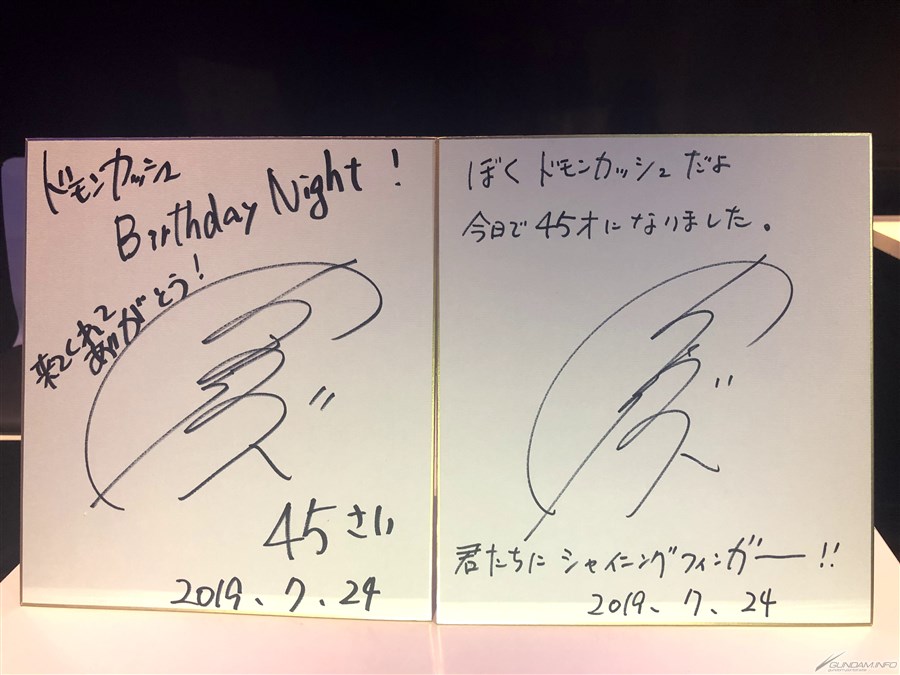 ドモンカッシュ
Birthday Night!
来てくれて
ありがとう!
45さい
2019、7、24
ぼく ドモンカッシュ だよ
今日で 45才になりました。
君たちに シャイニングフィンガー!!
2019、7、24
GUNDAM.INFO